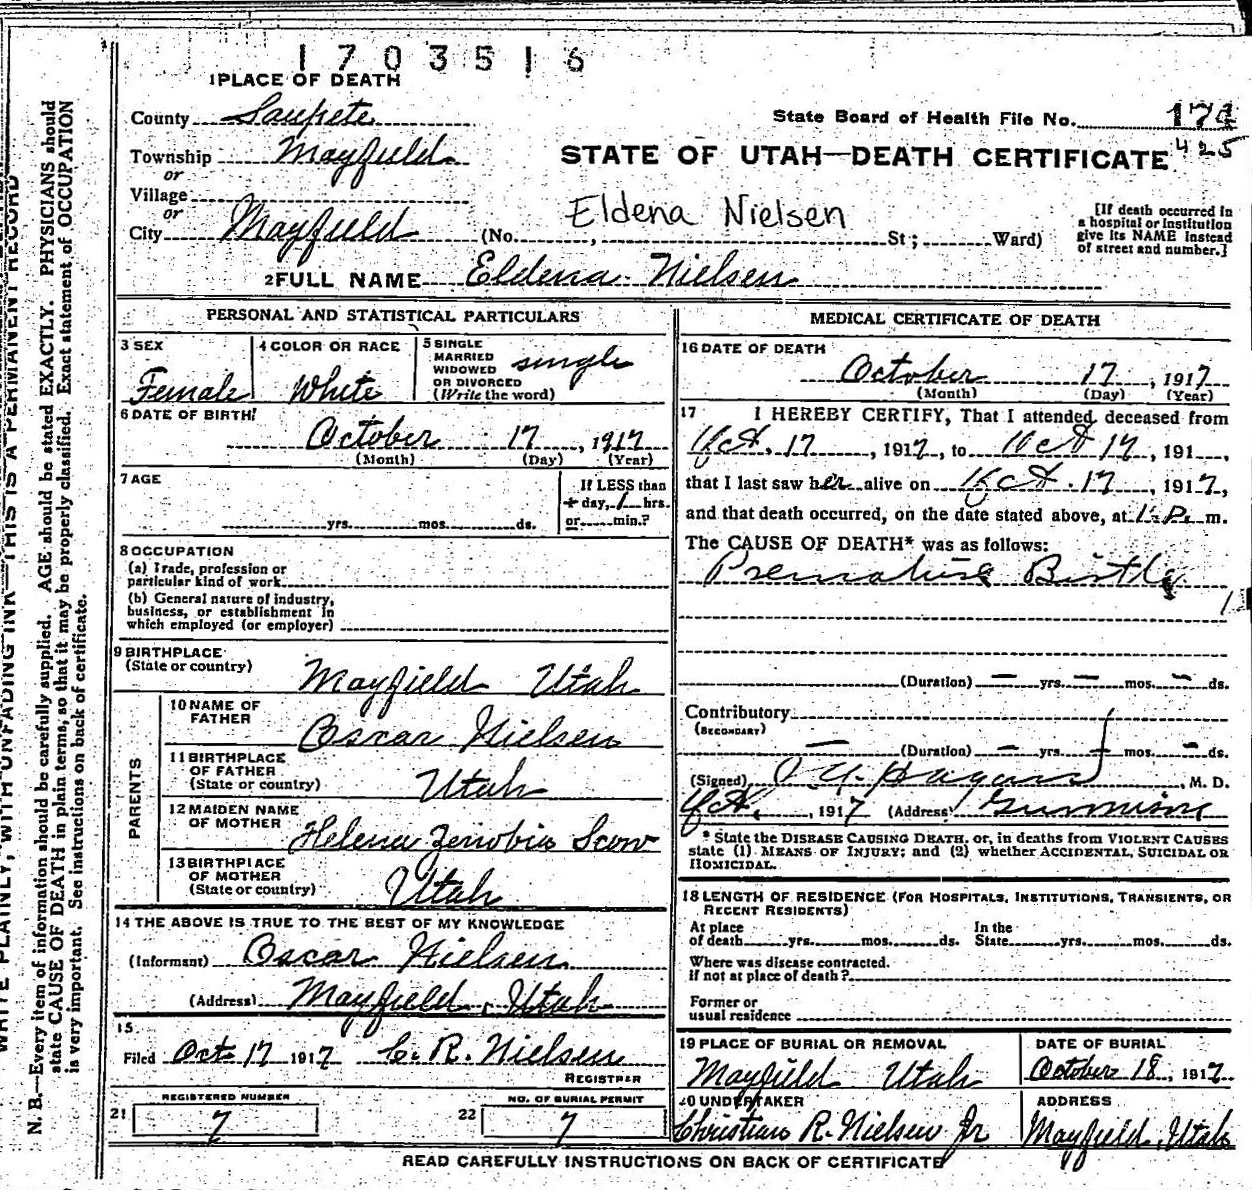 1703516
1 PLACE OF DEATH
County Sanpete
State Board of Health File No. 174
425
Township Mayfield
or
STATE OF UTAH—DEATH CERTIFICATE
Village
or
Eldena Nielsen
City Mayfield (No. , St; Ward)
[If death occurred in
a hospital or institution
give its NAME instead
of street and number.]
2 FULL NAME Eldena Nielsen
PERSONAL AND STATISTICAL PARTICULARS
3 SEX
Female
4 COLOR OR RACE
White
5 SINGLE
MARRIED
WIDOWED
OR DIVORCED
(Write the word)
single
6 DATE OF BIRTH
October 17, 1917
(Month) (Day) (Year)
7 AGE
yrs. mos. ds.
If LESS than
1 day, 1 hrs.
or min.?
8 OCCUPATION
(a) Trade, profession or
particular kind of work
(b) General nature of industry,
business, or establishment in
which employed (or employer)
9 BIRTHPLACE
(State or country)
Mayfield Utah
PARENTS
10 NAME OF
FATHER
Oscar Nielsen
11 BIRTHPLACE
OF FATHER
(State or country)
Utah
12 MAIDEN NAME
OF MOTHER
Helena Zenobia Scow
13 BIRTHPLACE
OF MOTHER
(State or country)
Utah
14 THE ABOVE IS TRUE TO THE BEST OF MY KNOWLEDGE
(Informant) Oscar Nielsen
(Address) Mayfield, Utah
15
Filed Oct 17 1917 C. R. Nielsen
REGISTRAR
21 REGISTERED NUMBER
7
22 NO. OF BURIAL PERMIT
7
MEDICAL CERTIFICATE OF DEATH
16 DATE OF DEATH
October 17, 1917
(Month) (Day) (Year)
17 I HEREBY CERTIFY, That I attended deceased from
Oct. 17, 1917, to Oct 17, 191 ,
that I last saw her alive on Oct. 17, 1917,
and that death occurred, on the date stated above, at 1 P. m.
The CAUSE OF DEATH* was as follows:
Premature Birth
(Duration) — yrs. — mos. — ds.
Contributory
(SECONDARY)
— (Duration) — yrs. — mos. — ds.
(Signed) , M. D.
Oct, , 1917 (Address) Gunnison
* State the DISEASE CAUSING DEATH, or, in deaths from VIOLENT CAUSES
state (1) MEANS OF INJURY; and (2) whether ACCIDENTAL, SUICIDAL OR
HOMICIDAL.
18 LENGTH OF RESIDENCE (FOR HOSPITALS, INSTITUTIONS, TRANSIENTS, OR
RECENT RESIDENTS)
At place
of death yrs. mos. ds.
In the
State yrs. mos. ds.
Where was disease contracted.
if not at place of death?
Former or
usual residence
19 PLACE OF BURIAL OR REMOVAL
Mayfield Utah
DATE OF BURIAL
October 18, 1917
20 UNDERTAKER
Christian R. Nielsen Jr
ADDRESS
Mayfield, Utah
READ CAREFULLY INSTRUCTIONS ON BACK OF CERTIFICATE
WRITE PLAINLY, WITH UNFADING INK—THIS IS A PERMANENT RECORD
N. B.—Every item of information should be carefully supplied. AGE should be stated EXACTLY. PHYSICIANS should
state CAUSE OF DEATH in plain terms, so that it may be properly classified. Exact statement of OCCUPATION
is very important. See instructions on back of certificate.